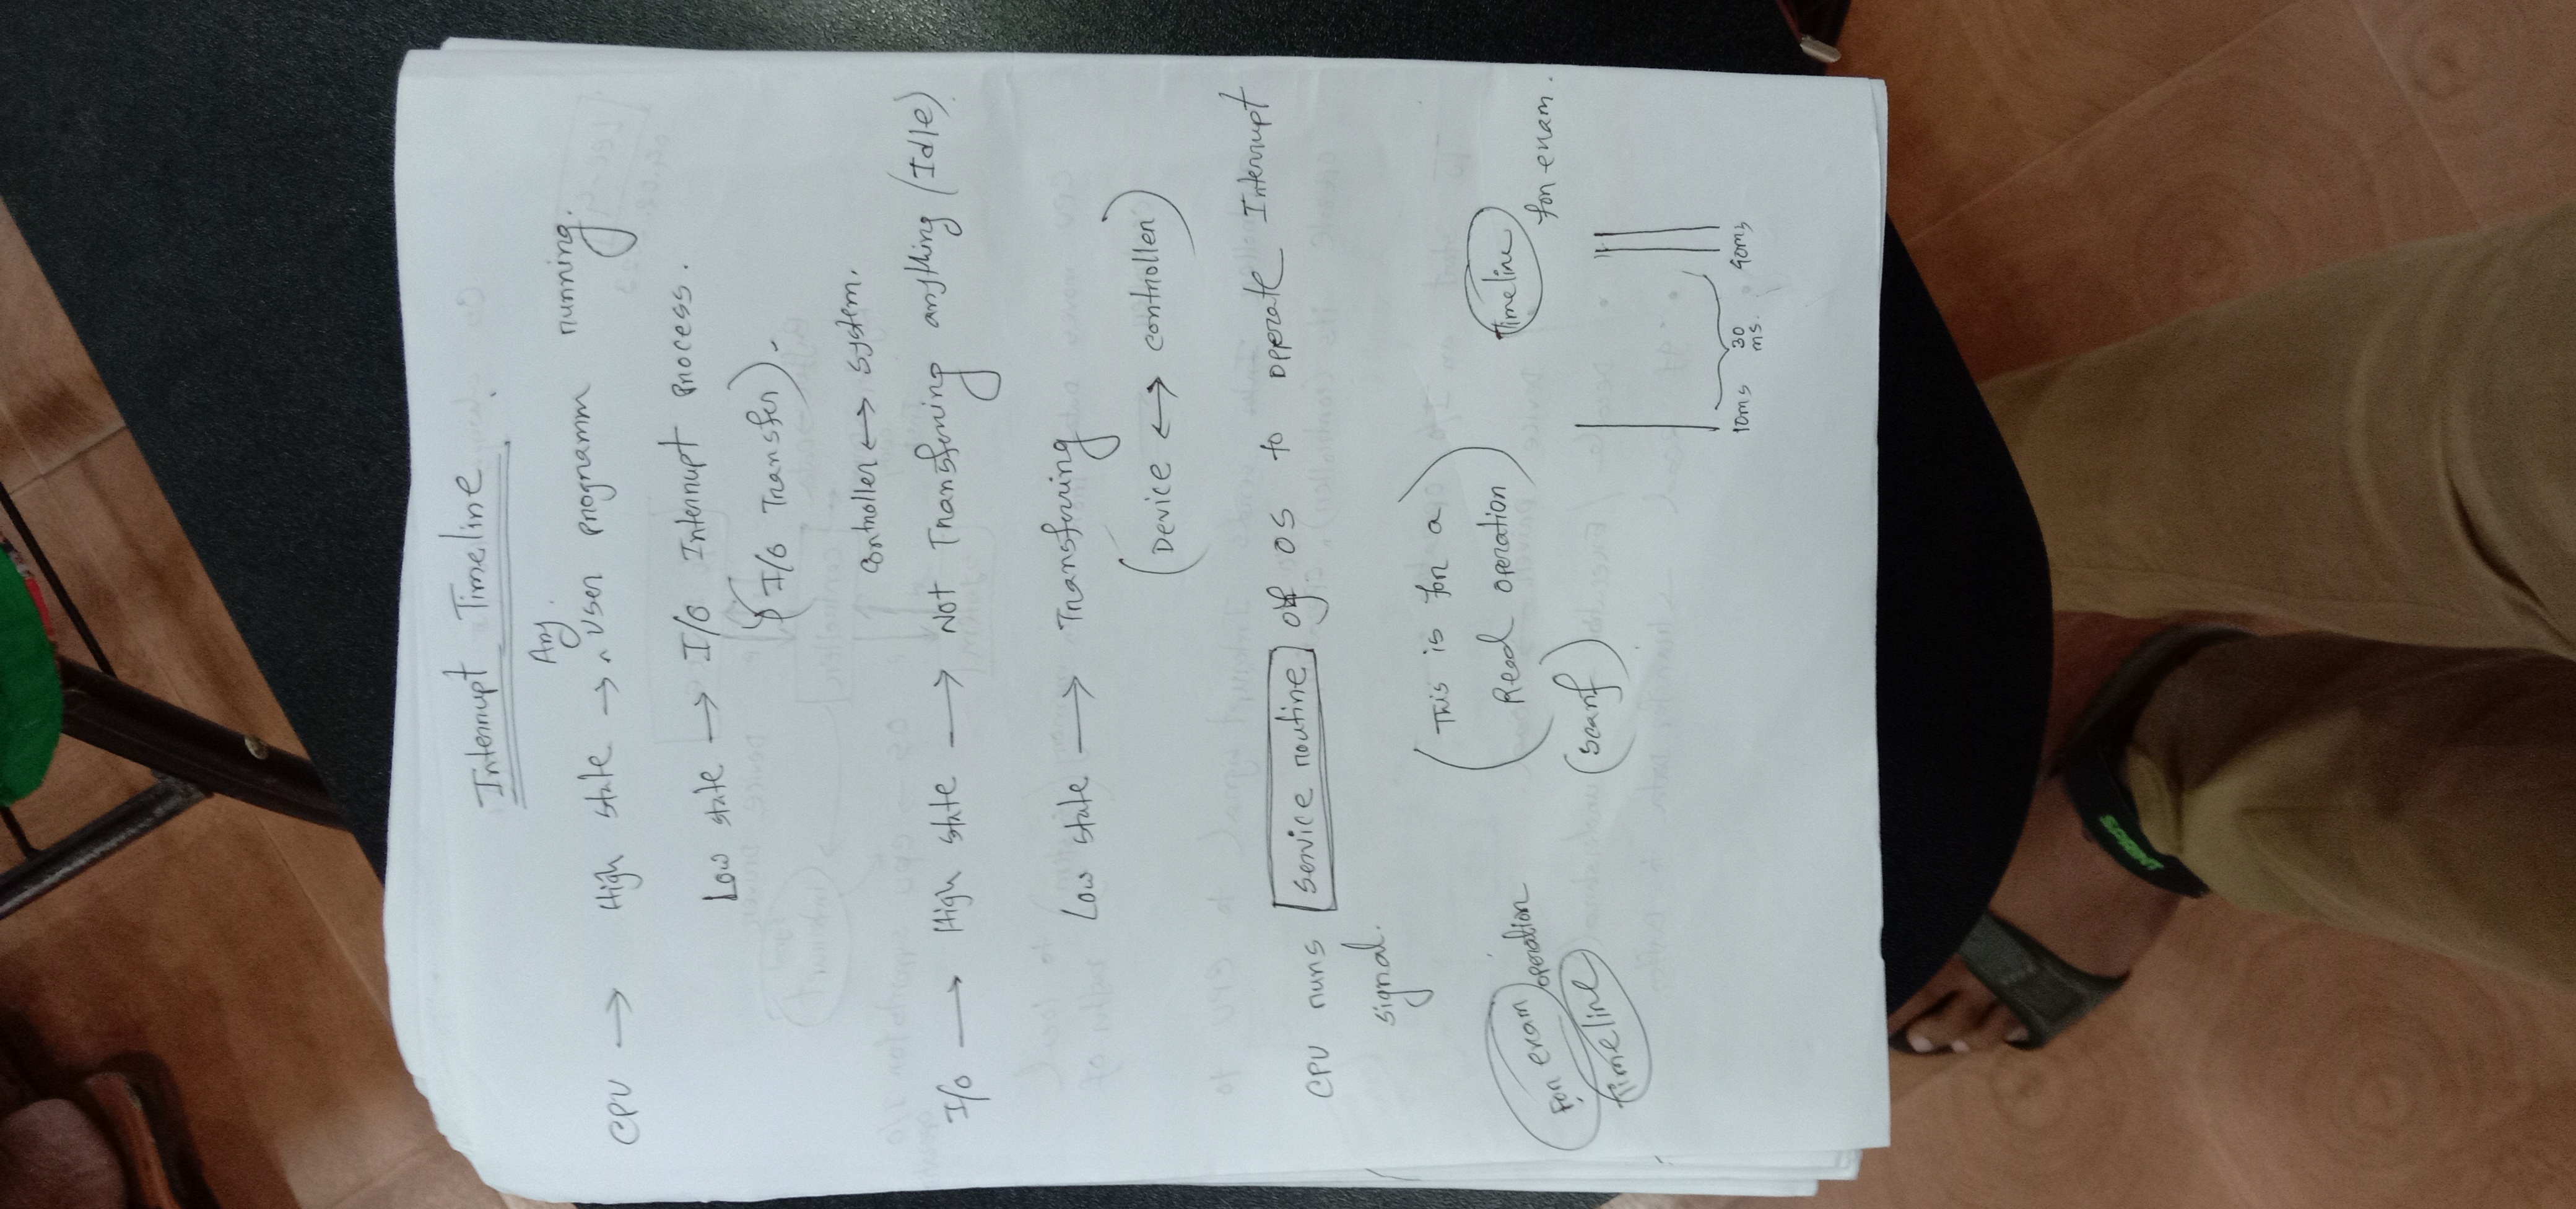 Interrupt Timeline
Any.
CPU → High state → ^ User programm running.
Low state → I/O Interrupt process.
(I/O Transfer).
Controller ↔ system.
I/O → High state → Not Transferring anything (Idle)
Low state → Transferring
(Device ↔ controller)
CPU runs service routine of OS to opperate Interrupt
signal.
(This is for a
Read operation)
(scanf)
For exam operation
timeline
timeline
for exam.
10ms 30 ms. 40ms
SPRINT